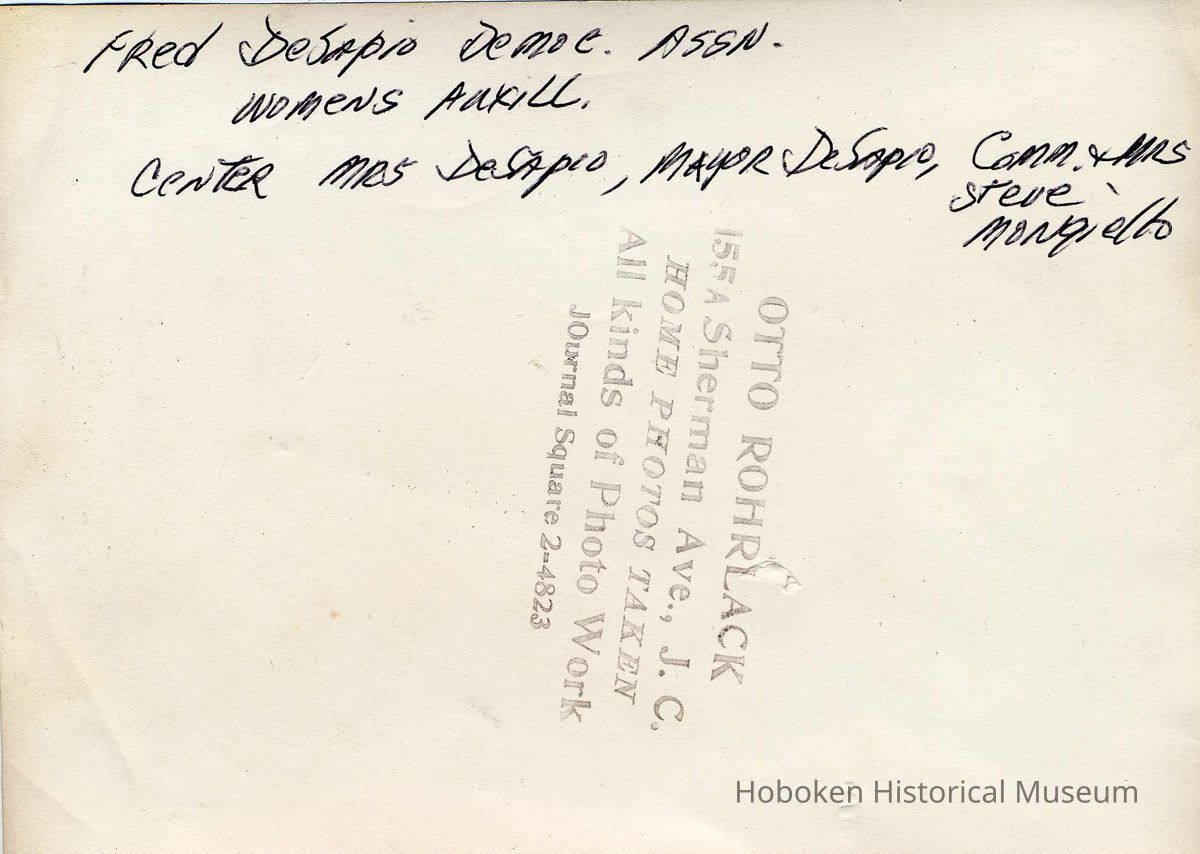 Fred DeSapio Democ. Assn.
Womens Auxill.
Center Mrs DeSapio, Mayor DeSapio, Comm. & Mrs
Steve
Mongiello
OTTO ROHRLACK
155A Sherman Ave., J. C.
HOME PHOTOS TAKEN
All kinds of Photo Work
JOurnal Square 2-4823
Hoboken Historical Museum